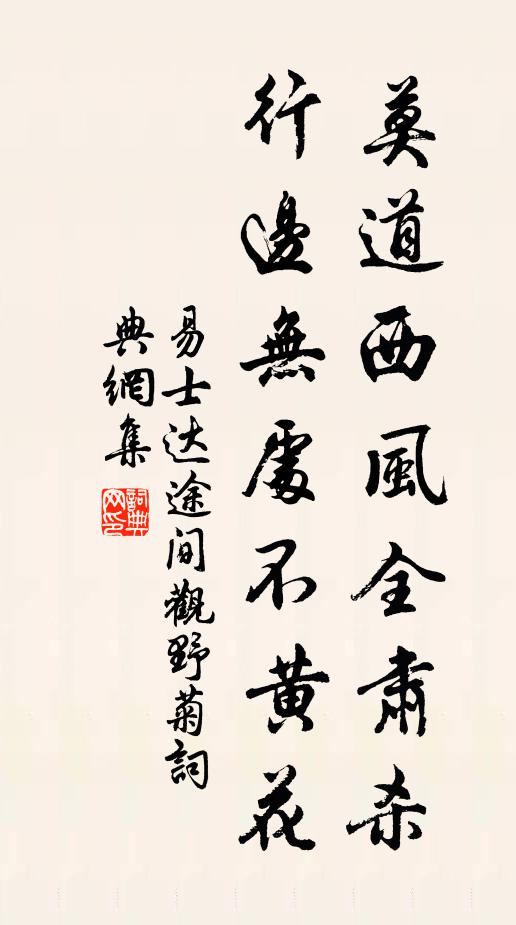 莫道西風全肅杀
行邊無處不黃花
易士达途间觀野菊詞
典網集
詞典网印